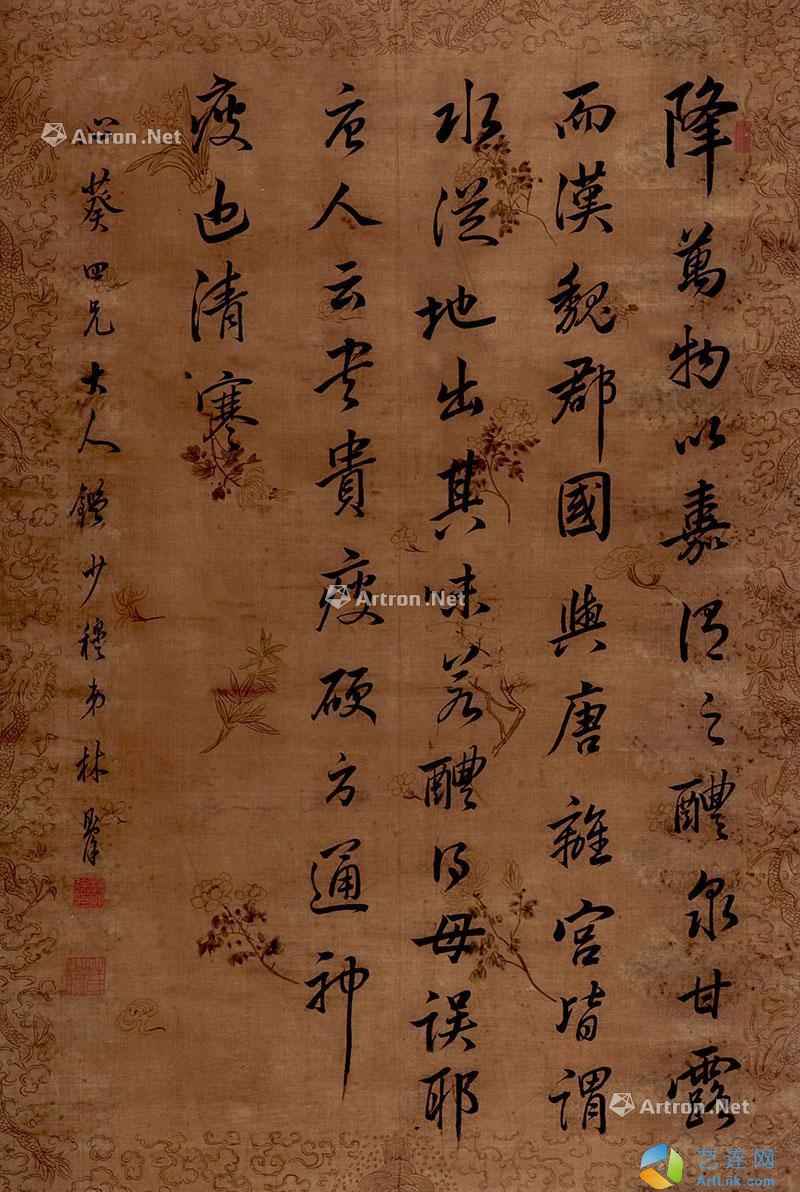 降萬物以嘉謂之醴泉甘露
而漢魏郡國與唐離宮皆謂
水從地出其味若醴得毋誤耶
唐人云書貴瘦硬方通神
瘦也清寒
心葵四兄大人鑑少穆弟林
Artron.Net
Artron.Net
Artron.Net
艺连网
ArtLink.com